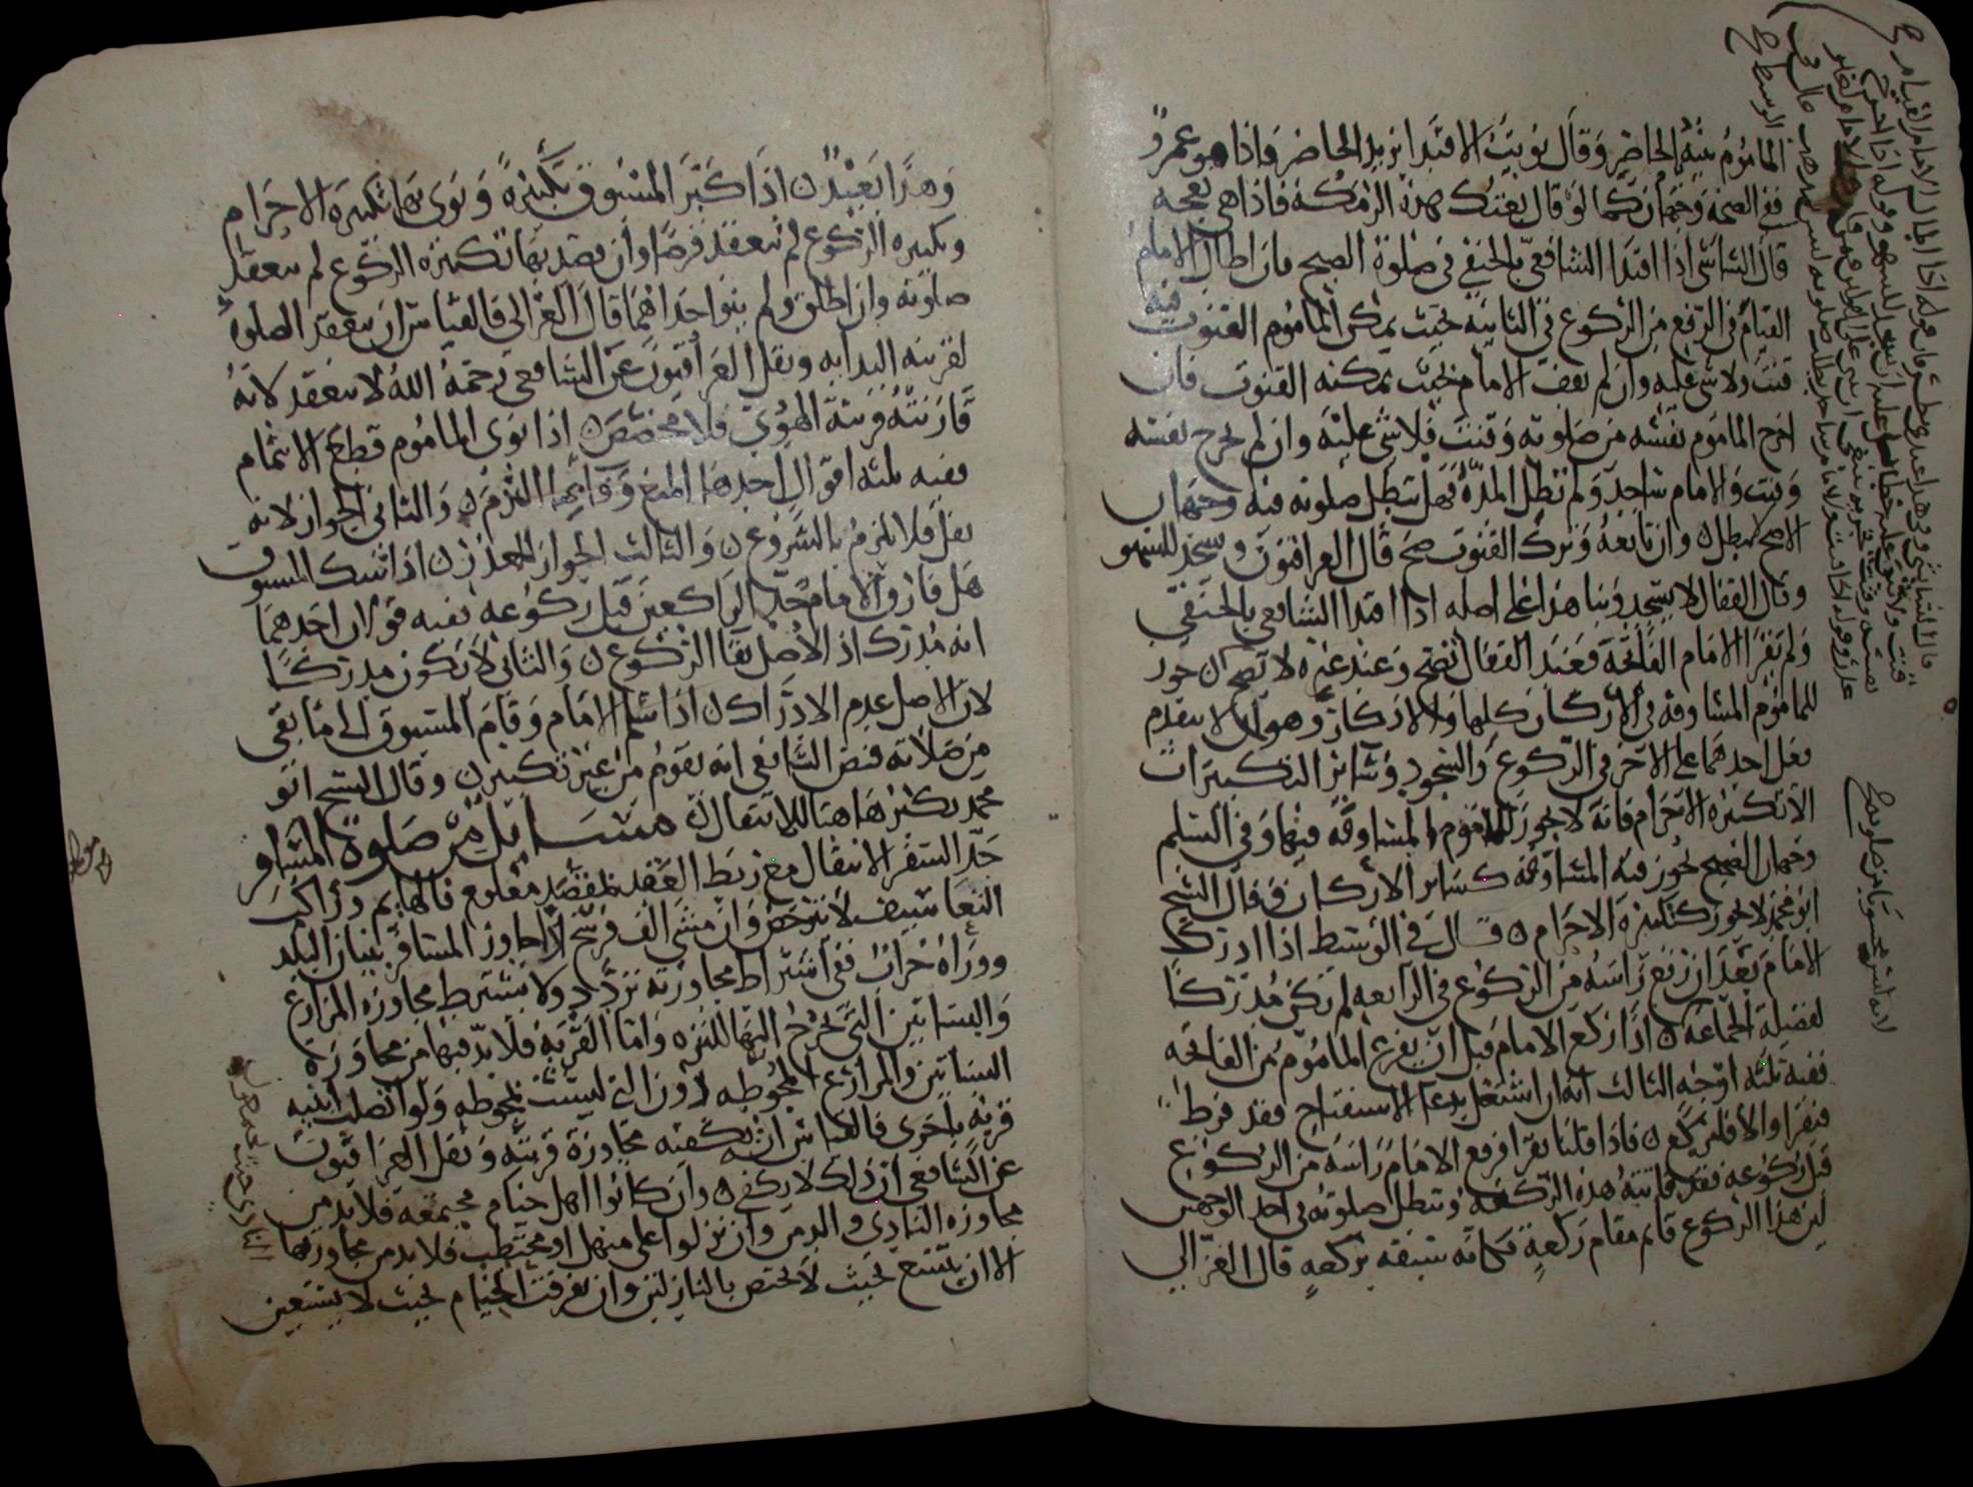 المأموم بنية الحاضر وقال نويت الاقتدا بزيد الحاضر فاذا هو عمرو
ففي الصحة وجهان كما لو قال بعتك هذه الرمكة فاذا هي نعجه
قال الشاشي اذا اقتدا الشافعي بالحنفي في صلوة الصبح فان اطال الامام
القيام في الرفع من الركوع في الثانية بحيث يمكن المأموم القنوت فيه
قنت ولا شي عليه وان لم يقف الامام بحيث يمكنه القنوت فان
اخرج الماموم نفسه من صلوته وقنت فلا شي عليه وان لم يخرج نفسه
وقنت والامام ساجد ولم تطل المدة فهل تبطل صلوته فيه وجهان
الاصح تبطل وان تابعه وترك القنوت صح قال العراقيون وسجد للسهو
وقال القفال لا يسجد وبنا هذا على اصله اذا اقتدا الشافعي بالحنفي
ولم يقرا الامام الفاتحة فعند القفال تصح وعند غيره لا تصح
للماموم المساوقة في الاركان كلها والاذكار وهو ان لا يتقدم
فعل احدهما على الاخر في الركوع والسجود وسائر التكبيرات
الا تكبيرة الاحرام فانه لا يجوز للماموم المساوقة فيها وفي السلم
وجهان الصحيح يجوز فيه المساوقة كساير الاركان وقال الشيخ
ابو محمد لا يجوز كتكبيرة الاحرام قال في الوسيط اذا ادرك
الامام بعد ان رفع راسه من الركوع في الرابعه لم يكن مدركا
لفضيلة الجماعة اذا ركع الامام قبل ان يفرغ الماموم من الفاتحه
ففيه ثلثه اوجه الثالث انه ان اشتغل بدعا الاستفتاح فقد فرط
فيقرا والا فليركع فاذا قلنا يقرا فرفع الامام راسه من الركوع
قبل ركوعه فقد فاتته هذه الركعة وتبطل صلوته في احد الوجهين
لان هذا الركوع قايم مقام ركعة فكانه سبقه بركعة قال الغزالي
وهذا بعيد اذا كبر المسبوق تكبيرة ونوى بها تكبيره الاحرام
وتكبيره الركوع لم تنعقد فرضا وان قصد بها تكبيره الركوع لم تنعقد
صلوته وان اطلق ولم ينو احداهما قال الغزالي فالقياس ان تنعقد الصلوة
لقرينه البدايه ونقل العراقيون عن الشافعي رحمه الله لا تنعقد لانه
قارنته قرينة الهوي فلا مخصص اذا نوى الماموم قطع الائتمام
ففيه ثلثه اقوال احدها المنع وفا بما التزم والثاني الجواز لانه
نفل فلا يلزم بالشروع والثالث الجواز للمعذور اذا شك المسبوق
هل قارن الامام حد الراكعين قبل ركوعه ففيه قولان احدهما
انه مدرك اذ الاصل بقا الركوع والثاني لا يكون مدركا
لان الاصل عدم الادراك اذا سلم الامام وقام المسبوق الى ما بقي
من صلاته فنص الشافعي انه يقوم من غير تكبير وقال الشيخ ابو
محمد يكبر هاهنا للانتقال مسايل من صلوة المسافر
حد السفر الانتقال مع ربط القصد بمقصد معلوم فالهايم وراكب
التعاسيف لا يترخص وان مشي الف فرسخ اذا جاوز المسافر بنيان البلد
ووراه خراب ففي اشتراط مجاوزته تردد ولا يشترط مجاوزه المزارع
والبساتين التي يخرج اليها للنزه واما القرية فلا بد فيها من مجاوزة
البساتين والمزارع المحوطه دون التي ليست بمحوطه ولو اتصلت ابنيه
قرية باخرى فالقياس انه يكفيه مجاوزة قريته ونقل العراقيون
عن الشافعي ان ذلك لا يكفي وان كانوا اهل خيام مجتمعة فلا بد من
مجاوزه النادي والدمن وان نزلوا على منهل او محتطب فلا بد من مجاوزتها
الا ان يتسع بحيث لا يختص بالنازلين وان تفرقت الخيام بحيث لا يستعين